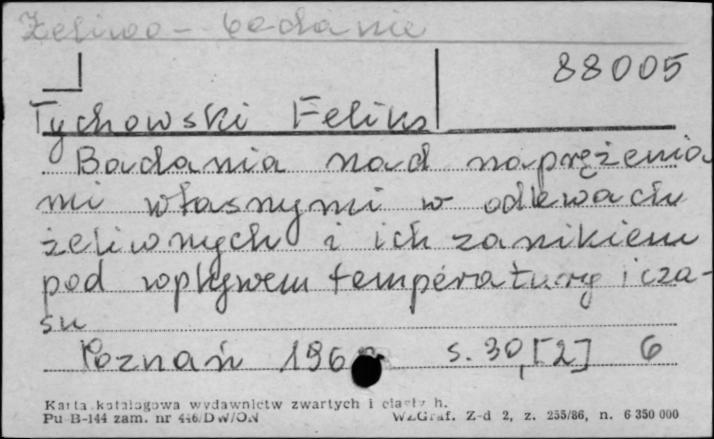 Żeliwo - badanie
88005
Tychowski Feliks
Badania nad naprężenia
mi własnymi w odlewach
żeliwnych i ich zanikiem
pod wpływem temperatury i cza-
su
Poznań s. 30, [2] 6
Karta katalogowa wydawnictw zwartych i ciągłych.
Pu-B-144 zam. nr 446/DW/ON WZGraf. Z-d 2, z. 255/86, n. 6 350 000